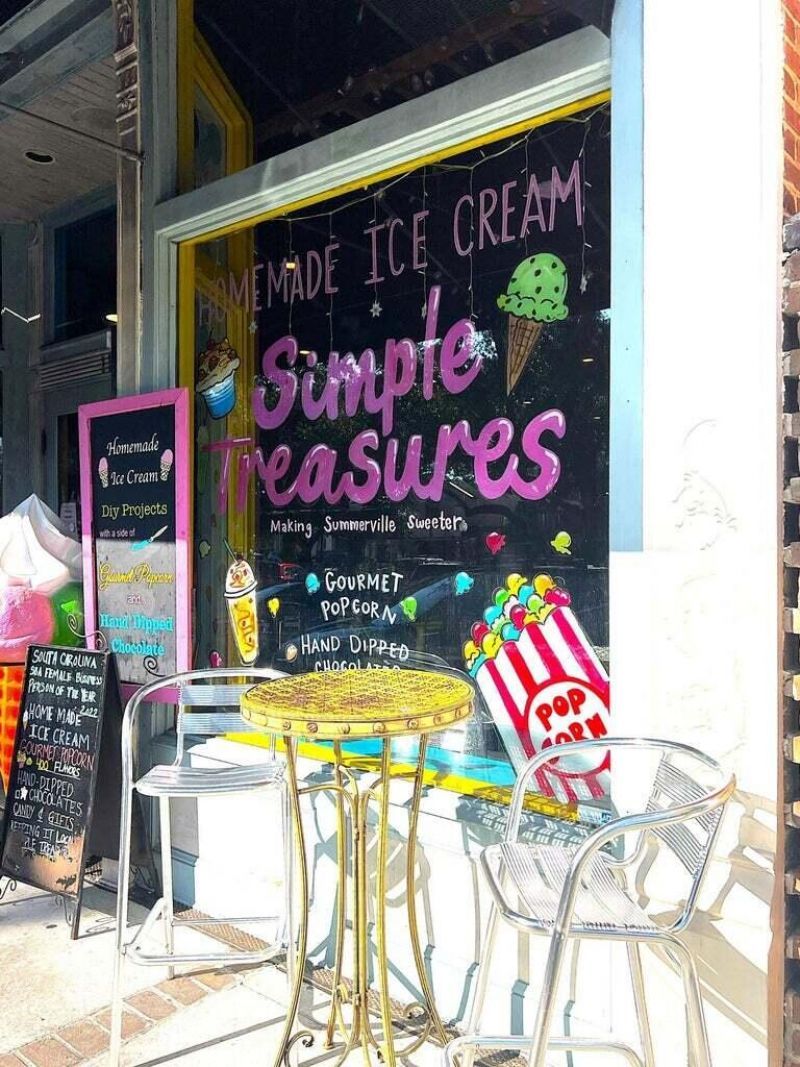 HOMEMADE ICE CREAM
Simple
Treasures
Making Summerville Sweeter
GOURMET
POPCORN
HAND DIPPED
CHOCOLATES
POP
CORN
Homemade
Ice Cream
Diy Projects
with a side of
Gourmet Popcorn
and
Hand Dipped
Chocolate
SOUTH CAROLINA
SBA FEMALE BUSINESS
PERSON OF THE YEAR
2022
HOME MADE
ICE CREAM
GOURMET POPCORN
400 FLAVORS
HAND-DIPPED
CHOCOLATES
CANDY & GIFTS
KEEPING IT LOCAL